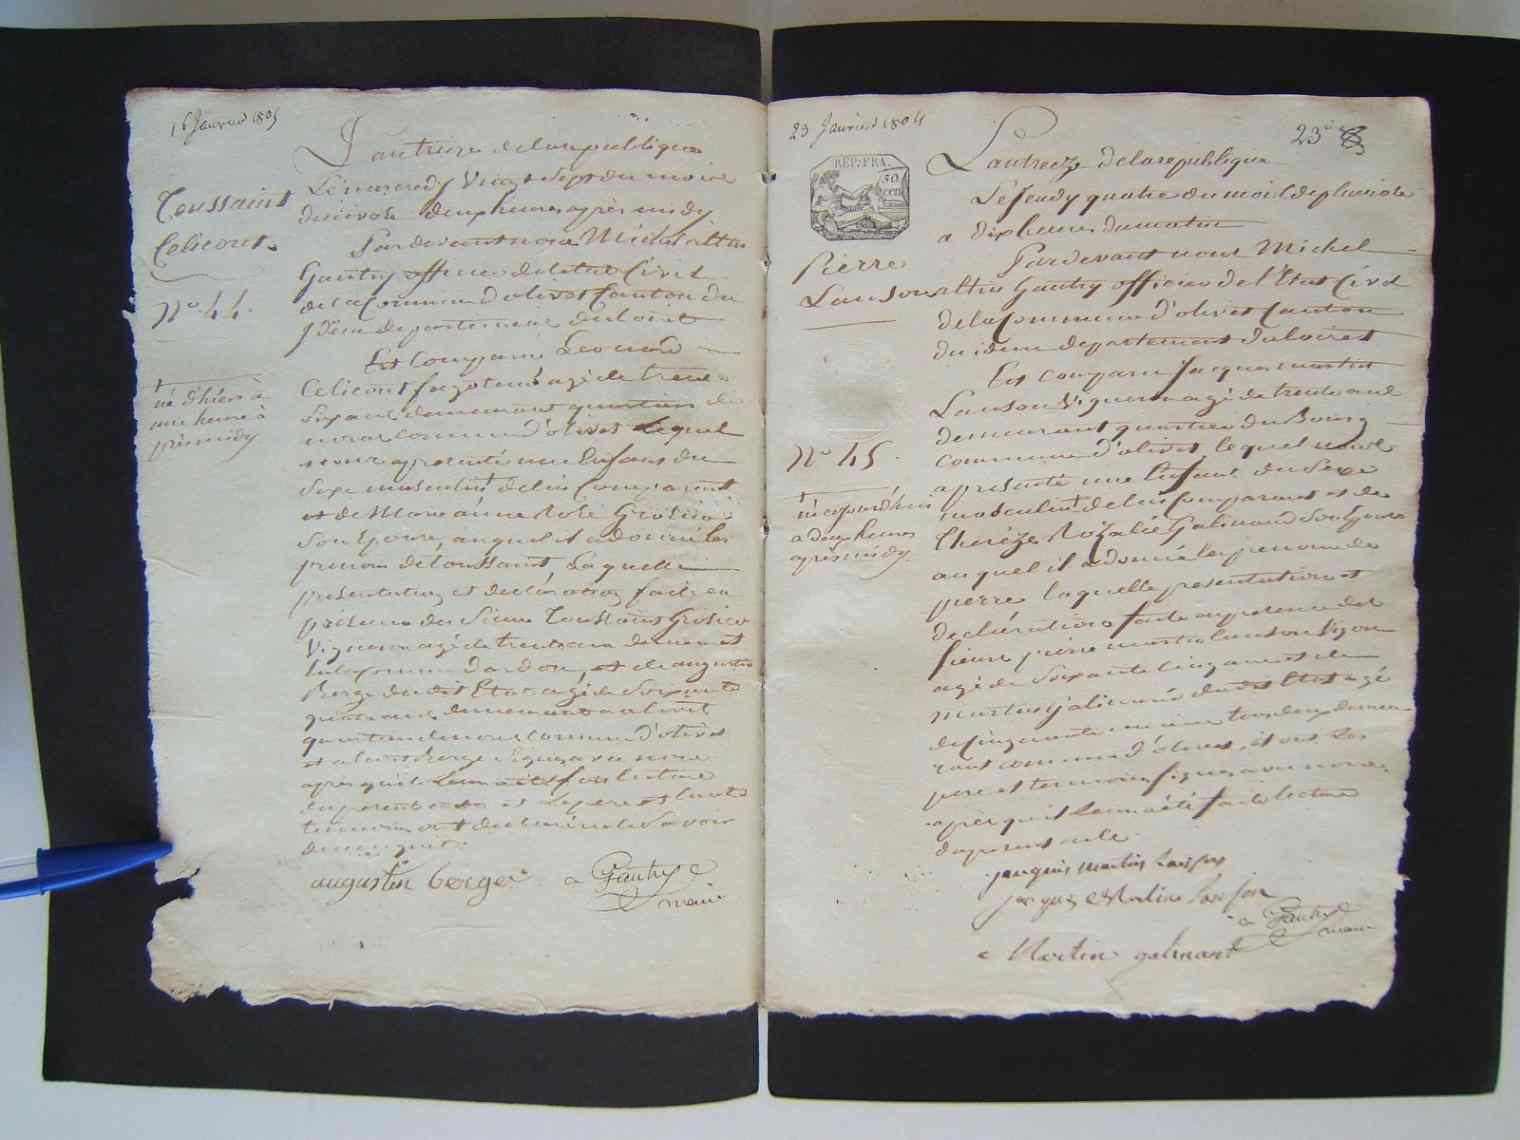 Toussaint
Celicourt
No 44.
né d'hiers à
une heure à
près midy
L'an treize de la republique
Le mercredy Vingt Sept du mois
de nivose deux heures après midy
Par devant nous Michel altin
Gautry officier de l'etat Civil
de la Commune d'olivet Canton du
Idem departement du Loiret
Est Comparu Leonard
Celicourt fagoteur agé de trente
Six ans demeurant quartier de
commune d'olivet Lequel
nous a presenté une Enfans du
Sexe masculin de lui Comparant
et de Marianne
Son Epouse, auquel il a donné les
prenom de toussaint, Laquelle
presentation et declaration faite en
présence des Sieurs Toussaint
Vigneron agé de trente ans demeurant
et de augustin
Berge dudit Etat agé de Soixante
quatre ans demeurant
commune d'olivet
et a ledit Berge Signé avec nous
après qu'il Leur a été fait lecture
du présent acte et le pere et l'autre
temoins ont declaré ne le Savoir
augustin berge a Gautry
maire
23 Janvier 1804
REP. FRA.
50
cen
23e
Pierre
Lanson
No 45.
né aujourd'hui
a deux heures
après midy
L'an treize de la republique
Le Jeudy quatre du mois de pluviose
a dix heures du matin
Par devant nous Michel
altin Gautry officier de l'Etat Civil
de la Commune d'olivet Canton
du idem departement du Loiret
Est comparu Jacques martin
Lanson Vigneron agé de trente ans
demeurant quartier du Bourg
commune d'olivet lequel nous a
presenté une Enfant du Sexe
masculin de lui Comparant et de
Therèze Rozalie Galinand Son Epouse
auquel il a donné les prenom de
pierre laquelle presentation et
declaration faite en presence des
sieurs pierre martin Lanson Vigneron
agé de Soixante Cinq ans et de
martin galinand dudit Etat agé
de Cinquante tous deux demeu
rant commune d'olivet, et ont Les
pere et temoins Signés avec nous
après qu'il Leur a été fait lecture
du present acte
jacques martin lanson
martin lanson
a Gautry
maire
Martin galinand